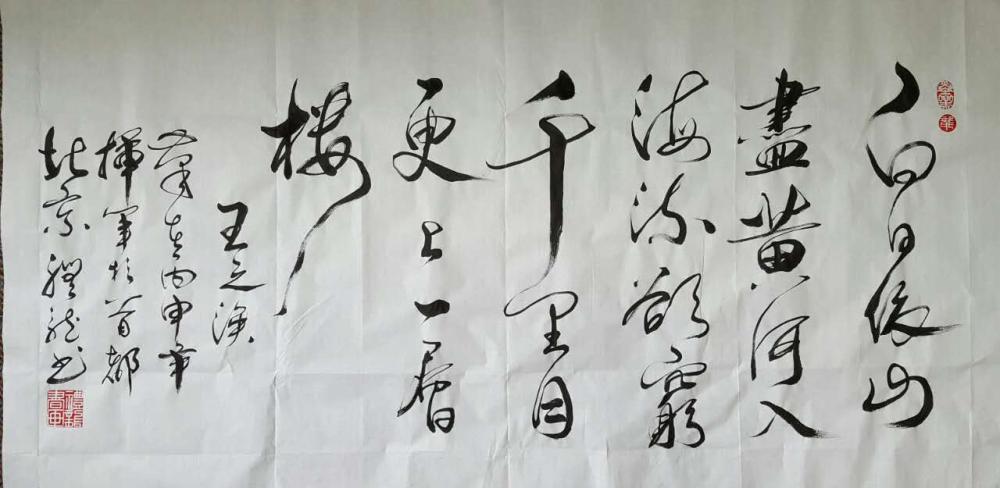 白日依山
盡黄河入
海流欲窮
千里目
更上一層
樓
王之渙
在丙申年
揮於首都
北京禮龍书
禮龍書印